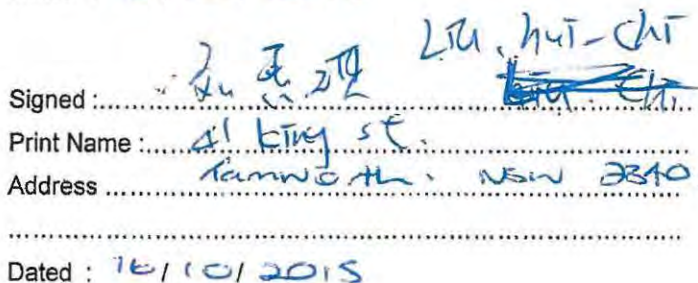 LIU, hui-chi
Signed :
Print Name : 41 King st.
Address Tamworth. NSW 2340
Dated : 16/10/2015